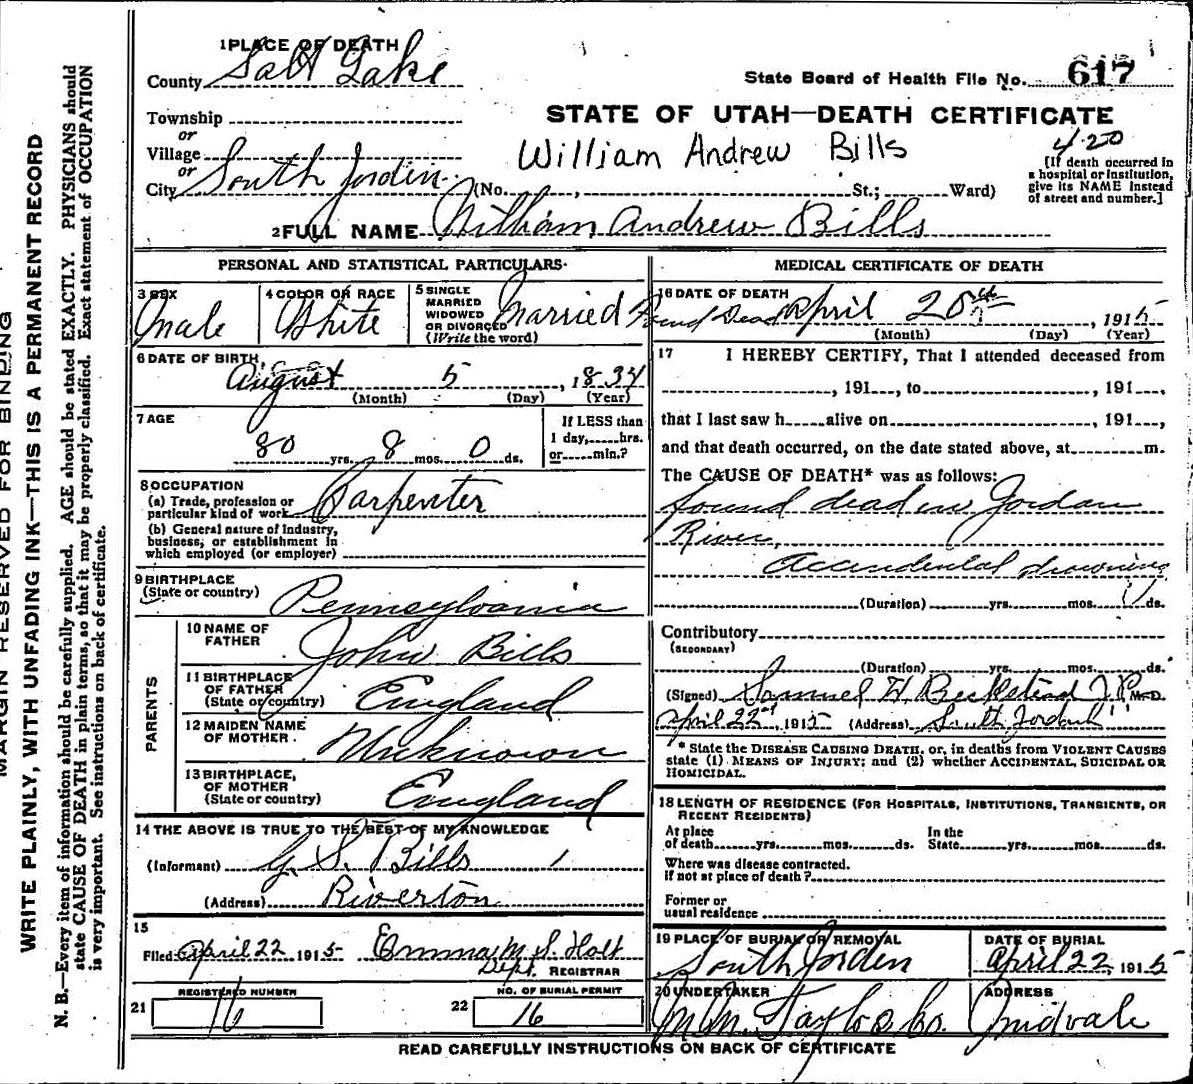 MARGIN RESERVED FOR BINDING
WRITE PLAINLY, WITH UNFADING INK—THIS IS A PERMANENT RECORD
N. B.—Every item of information should be carefully supplied. AGE should be stated EXACTLY. PHYSICIANS should
state CAUSE OF DEATH in plain terms, so that it may be properly classified. Exact statement of OCCUPATION
is very important. See instructions on back of certificate.
1 PLACE OF DEATH
County Salt Lake
State Board of Health File No. 617
Township
or
Village
or
City South Jorden (No. , St.; Ward)
STATE OF UTAH—DEATH CERTIFICATE
William Andrew Bills
420
[If death occurred in
a hospital or institution,
give its NAME instead
of street and number.]
2 FULL NAME William Andrew Bills
PERSONAL AND STATISTICAL PARTICULARS
3 SEX
Male
4 COLOR OR RACE
White
5 SINGLE
MARRIED
WIDOWED
OR DIVORCED
(Write the word)
Married
6 DATE OF BIRTH
August 5, 1834
(Month) (Day) (Year)
7 AGE
80 yrs. 8 mos. 0 ds.
If LESS than
1 day, hrs.
or min.?
8 OCCUPATION
(a) Trade, profession or
particular kind of work Carpenter
(b) General nature of Industry,
business, or establishment in
which employed (or employer)
9 BIRTHPLACE
(State or country) Pennsylvania
PARENTS
10 NAME OF
FATHER John Bills
11 BIRTHPLACE
OF FATHER
(State or country) England
12 MAIDEN NAME
OF MOTHER Unknown
13 BIRTHPLACE,
OF MOTHER
(State or country) England
14 THE ABOVE IS TRUE TO THE BEST OF MY KNOWLEDGE
(Informant) G. S. Bills
(Address) Riverton
15
Filed April 22 1915 Emma M. S. Holt
Dept. REGISTRAR
21 REGISTERED NUMBER
16
22 NO. OF BURIAL PERMIT
16
MEDICAL CERTIFICATE OF DEATH
16 DATE OF DEATH
Found Dead April 20th, 1915
(Month) (Day) (Year)
17 I HEREBY CERTIFY, That I attended deceased from
, 191 , to , 191 ,
that I last saw h alive on , 191 ,
and that death occurred, on the date stated above, at m.
The CAUSE OF DEATH* was as follows:
found dead in Jordan
River,
Accendental drowning
(Duration) yrs. mos. ds.
Contributory
(SECONDARY)
(Duration) yrs. mos. ds.
(Signed) Samuel H. Beckstead J.P. M. D.
April 22nd, 1915 (Address) South Jordan
* State the DISEASE CAUSING DEATH, or, in deaths from VIOLENT CAUSES
state (1) MEANS OF INJURY; and (2) whether ACCIDENTAL, SUICIDAL OR
HOMICIDAL.
18 LENGTH OF RESIDENCE (FOR HOSPITALS, INSTITUTIONS, TRANSIENTS, OR
RECENT RESIDENTS)
At place
of death yrs. mos. ds.
In the
State yrs. mos. ds.
Where was disease contracted.
if not at place of death?
Former or
usual residence
19 PLACE OF BURIAL OR REMOVAL
South Jorden
DATE OF BURIAL
April 22, 1915
20 UNDERTAKER
Taylor Co.
ADDRESS
Midvale
READ CAREFULLY INSTRUCTIONS ON BACK OF CERTIFICATE